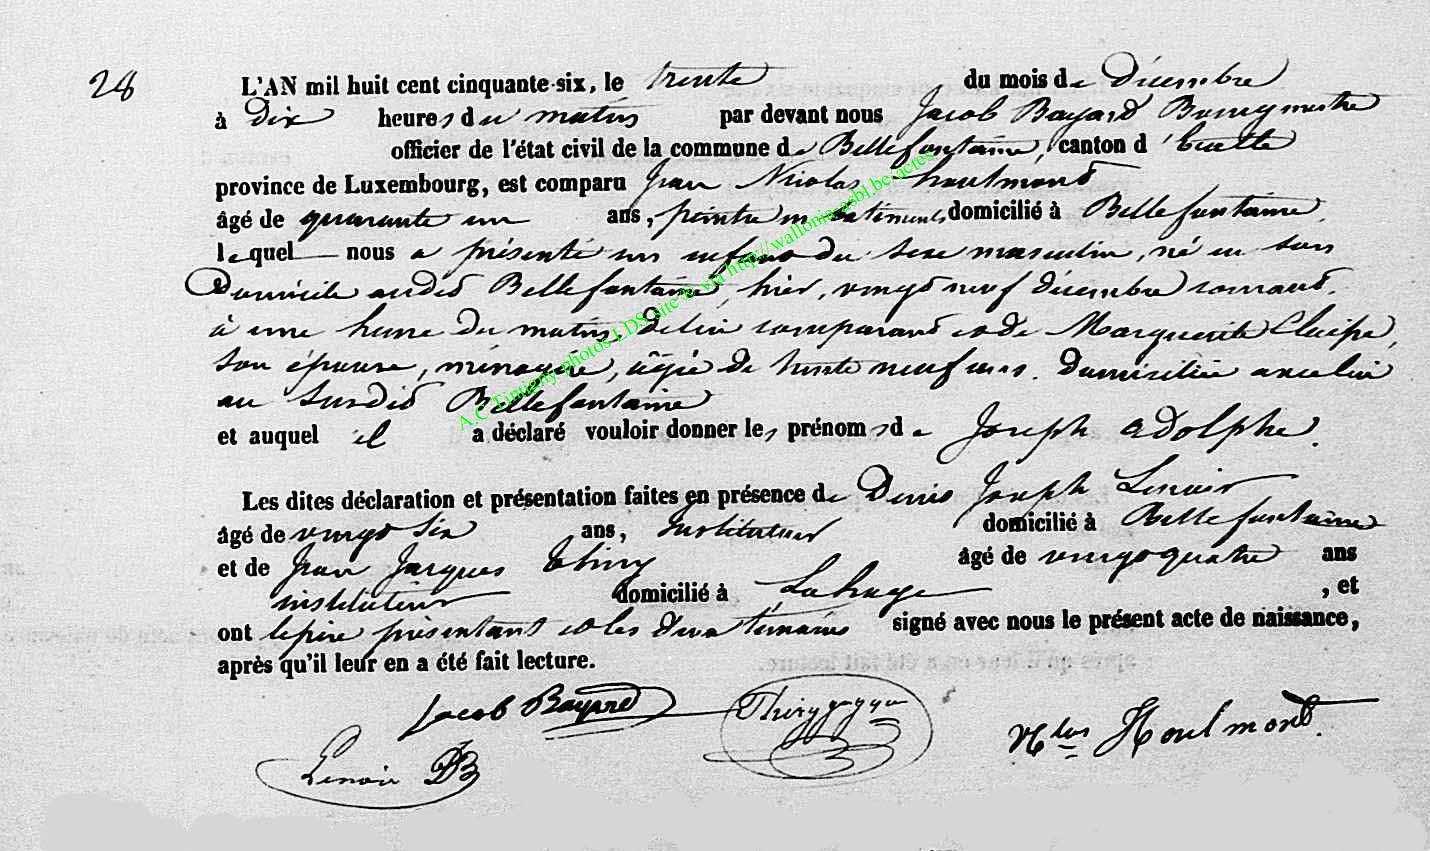 28
L'AN mil huit cent cinquante-six, le trente du mois de décembre
à dix heures du matin par devant nous Jacob Bayard Bourgmestre
officier de l'état civil de la commune de Bellefontaine, canton d'
province de Luxembourg, est comparu Jean Nicolas houlmont
âgé de quarante un ans, peintre en batiments domicilié à Bellefontaine,
lequel nous a présenté un enfant du sexe masculin, né en son
Domicile audit Bellefontaine, hier, vingt neuf décembre courant,
à une heure du matin, de lui comparant et de Marguerite
son épouse, ménagère, âgée de trente neuf ans. Domiciliée avec lui
au Surdit Bellefontaine
et auquel il a déclaré vouloir donner les prénoms de Joseph Adolphe.
Les dites déclaration et présentation faites en présence de Denis Joseph Lenoir
âgé de vingt six ans, Instituteur domicilié à Bellefontaine
et de Jean Jacques Thiry âgé de vingt quatre ans
instituteur domicilié à Lahage, et
ont le père présentant et les deux témoins signé avec nous le présent acte de naissance,
après qu'il leur en a été fait lecture.
Jacob Bayard Thiry Nlas Houlmont.
Lenoir
A.C. Tintigny photos LDS site & via http://walloniasbl.be/actes